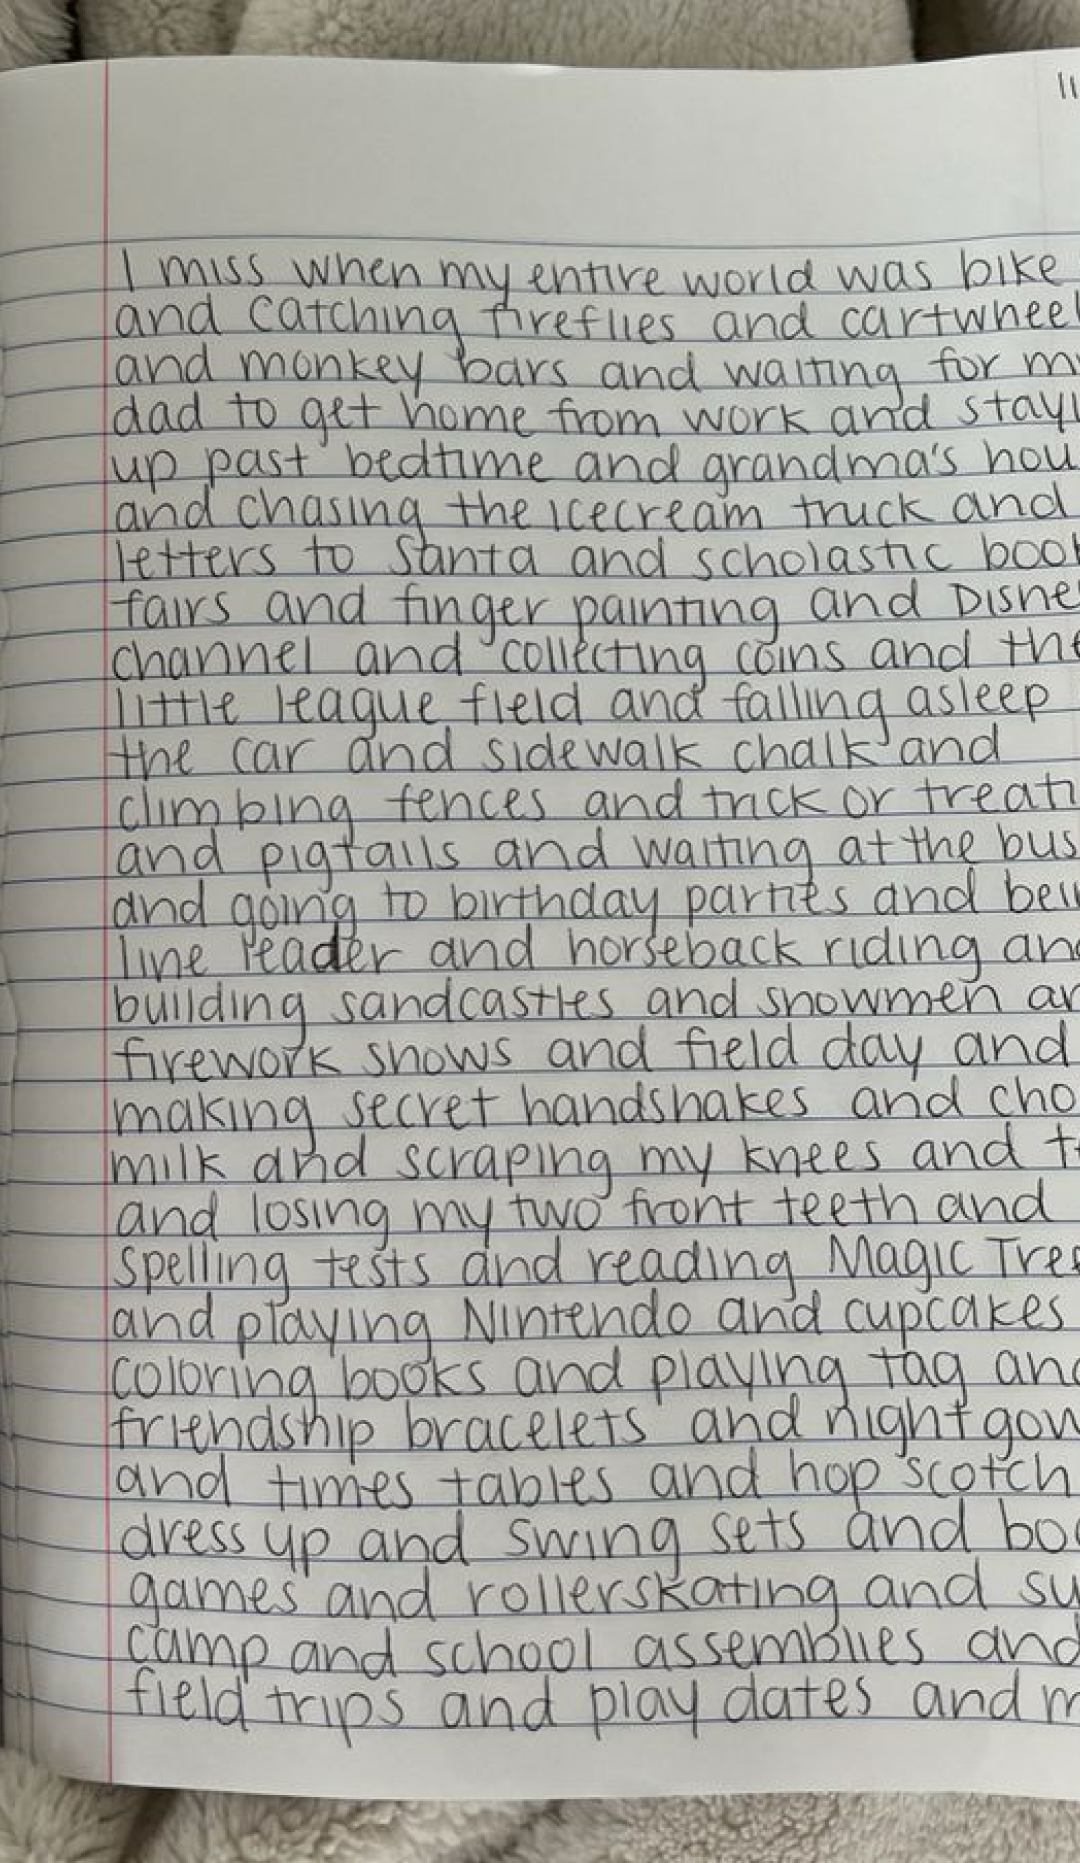 11
I miss when my entire world was bike
and catching fireflies and cartwheel
and monkey bars and waiting for m
dad to get home from work and stayi
up past bedtime and grandma's hou
and chasing the icecream truck and
letters to Santa and scholastic book
fairs and finger painting and Disne
channel and collecting coins and the
little league field and falling asleep
the car and sidewalk chalk and
climbing fences and trick or treati
and pigtails and waiting at the bus
and going to birthday parties and bei
line leader and horseback riding and
building sandcastles and snowmen an
firework shows and field day and
making secret handshakes and cho
milk and scraping my knees and t
and losing my two front teeth and
spelling tests and reading Magic Tree
and playing Nintendo and cupcakes
coloring books and playing tag and
friendship bracelets and nightgow
and times tables and hop scotch
dress up and swing sets and bo
games and rollerskating and su
camp and school assemblies and
field trips and play dates and m